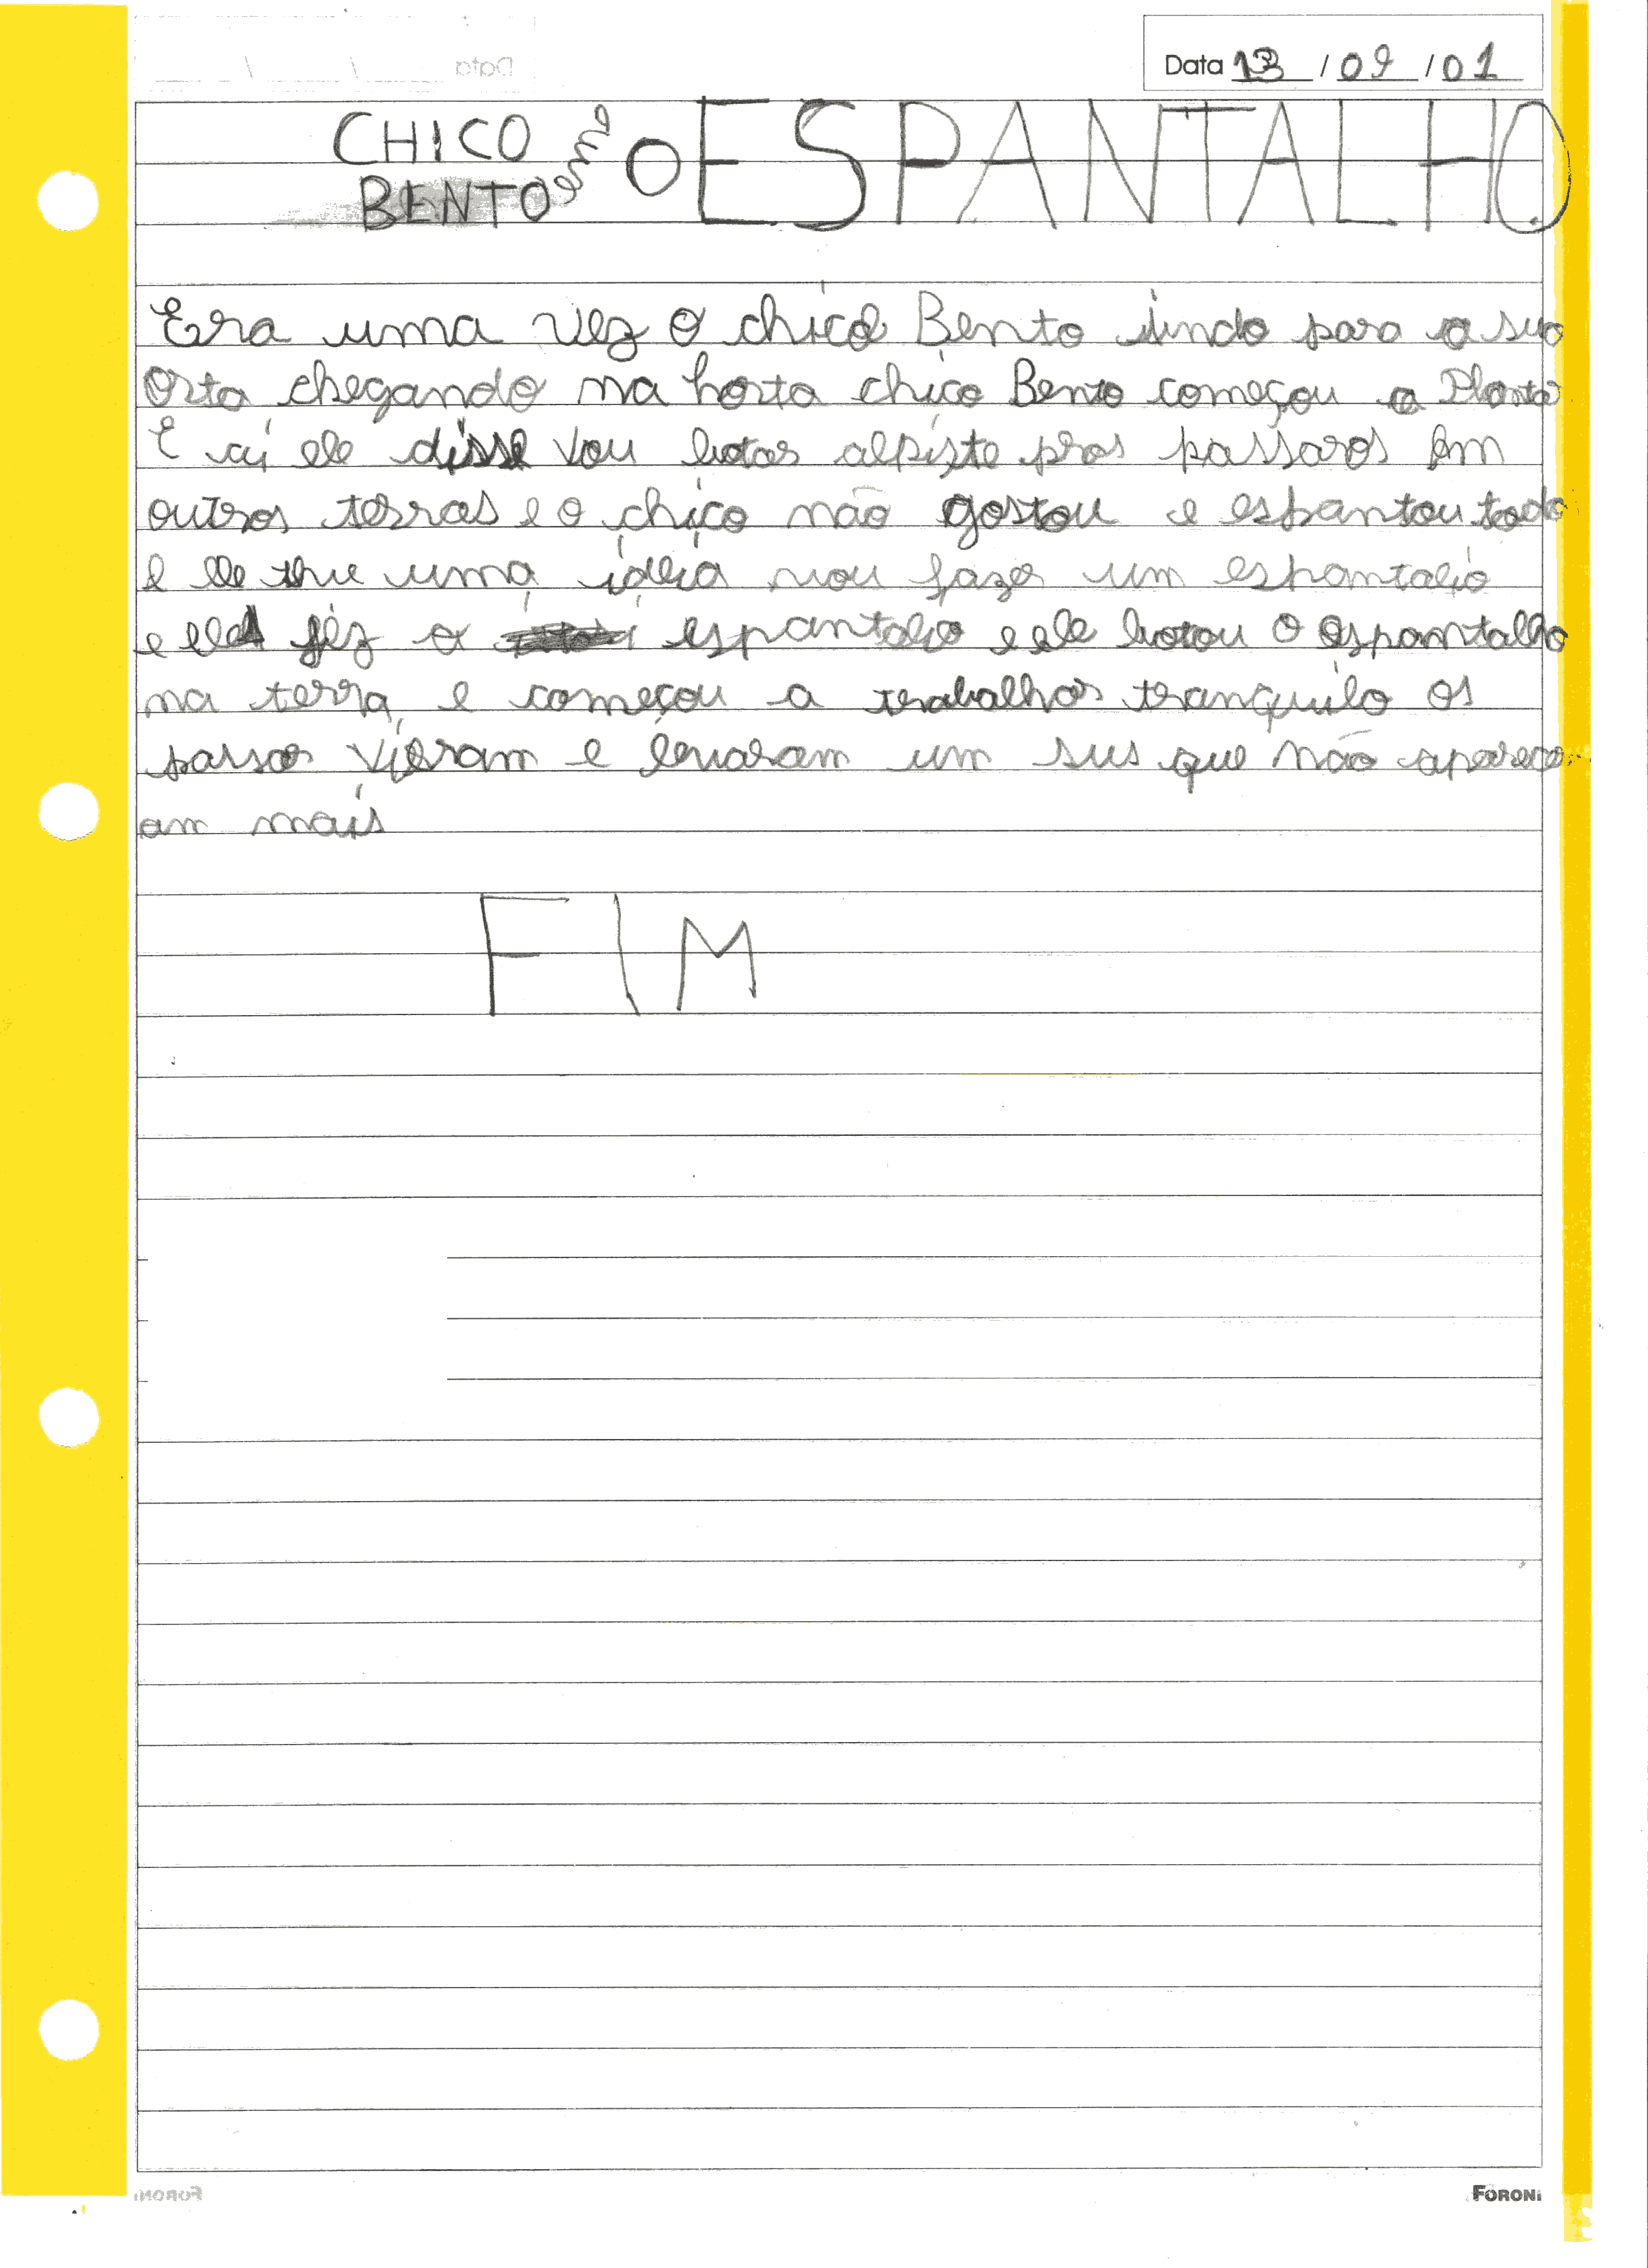 Data 13 / 09 / 01
CHICO BENTO em O ESPANTALHO
Era uma vez o chico Bento indo para a sua
orta chegando na horta chico Bento começou a Planta
E ai ele disse vou botar alpiste pros passaros em
outros terras e o chico não gostou e espantou todo
e ele tive uma ideia vou fazer um espantalio
e ele fez o espantalio e ele botou o espantalho
na terra e começou a trabalhar tranquilo os
passos vieram e levaram um sus que não apareco
am mais
FIM
FORONI